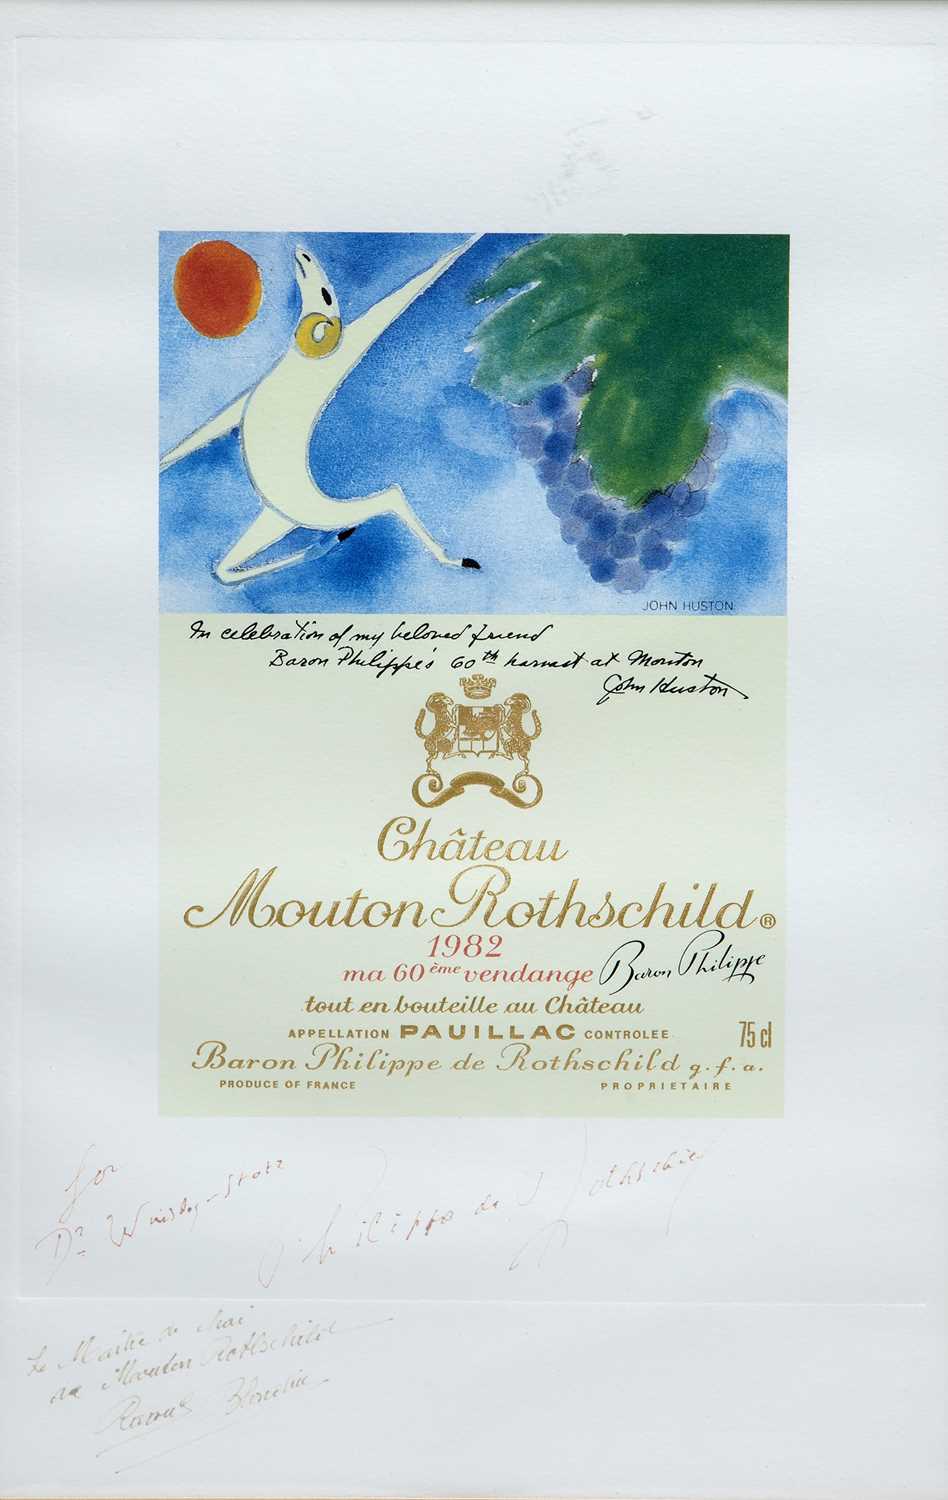 JOHN HUSTON
In celebration of my beloved friend
Baron Philippe's 60th harvest at Mouton
John Huston
Château
Mouton Rothschild®
1982
ma 60ème vendange Baron Philippe
tout en bouteille au Château
APPELLATION PAUILLAC CONTROLEE 75 cl
Baron Philippe de Rothschild g.f.a.
PRODUCE OF FRANCE PROPRIETAIRE
for
Dr
Philippe de Rothschild
Le Maitre de Chai
de Mouton Rothschild
Raoul Blondin